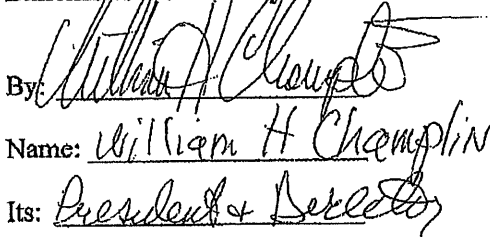 By: William H Champlin
Name: William H Champlin
Its: President & Director